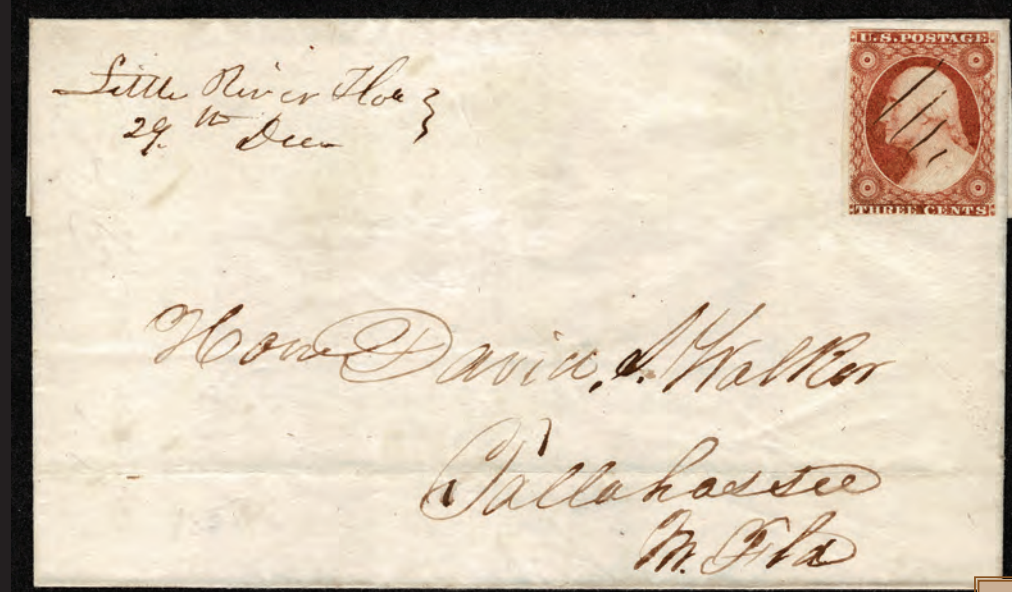 Little River Floa
29th Decr
U.S. POSTAGE
THREE CENTS
Hon David S. Walker
Tallahassee
M. Fla